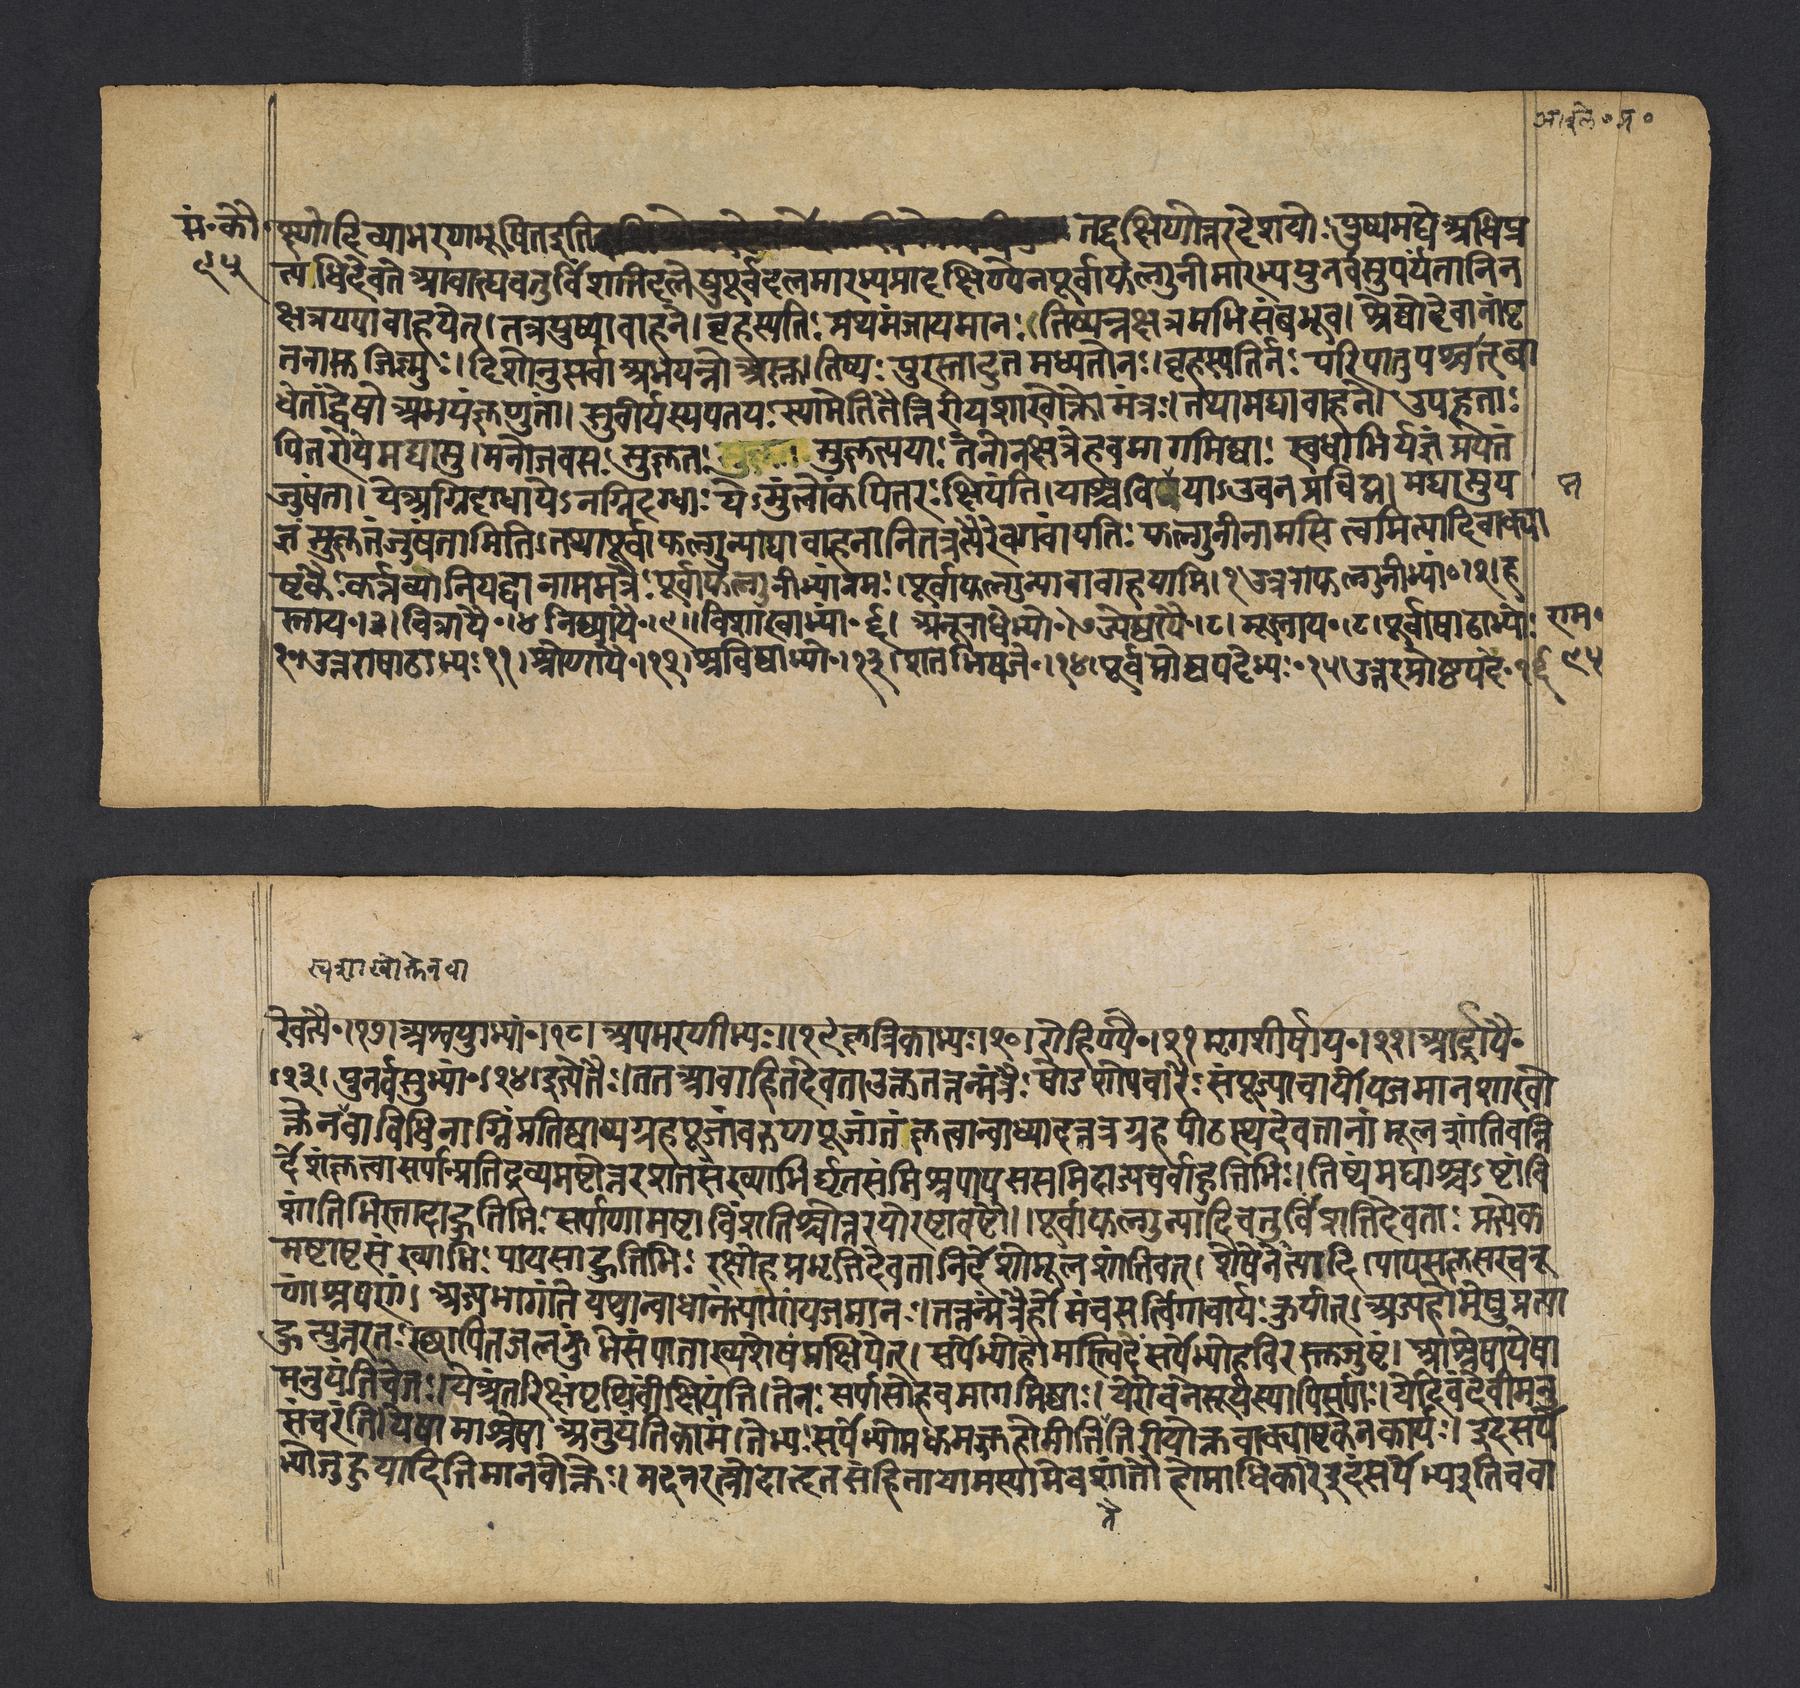 आश्ले॰ प्र॰
सं॰कौ॰
९५
ष्णो दिव्याभरणभूषित इति तद्दक्षिणोत्तरदेशयोः पुष्यमघे अधिप्र
त्यधिदेवते आवाह्य चतुर्विंशतिदलेषु पूर्वदलमारभ्य प्रादक्षिण्येन पूर्वाफल्गुनीमारभ्य पुनर्वसुपर्यंतानि न
क्षत्राण्यावाहयेत्। तत्र पुष्यावाहने। बृहस्पतिः प्रथमं जायमानः। तिष्यं नक्षत्रमभिसंबभूव। श्रेष्ठो देवानां पृ
तनासु जिष्णुः। दिशोनु सर्वा अभयं नो अस्तु। तिष्यः पुरस्तादुत मध्यतो नः। बृहस्पतिर्नः परिपातु पश्चात् बा
धेतां द्वेषो अभयं कृणुतां। सुवीर्यस्य पतयः स्यामेति तैत्तिरीयशाखोक्तो मंत्रः। तथा मघावाहने। उपहूताः
पितरो ये मघासु। मनोजवसः सुकृतः सुकृत्यायाः ते नो नक्षत्रे हवमागमिष्ठाः स्वधाभिर्यज्ञं प्रयतं
जुषंतां। ये अग्निदग्धा येऽनग्निदग्धाः येऽमुं लोकं पितरः क्षियंति। याश्च विद्म याऽ उ च न प्रविद्म। मघासु य
ज्ञं सुकृतं जुषंतामिति। तथा पूर्वाफल्गुन्याद्यावाहनानि तत्र गवां पतिः फल्गुनीनामसि त्वमित्यादिवाक्या
ष्टकैः कर्तव्यानि यद्वा नाममंत्रैः पूर्वाफल्गुनीभ्यां नमः। पूर्वाफल्गुन्यावावाहयामि। १ उत्तराफल्गुनीभ्यां॰।२। ह
स्ताय॰।३। चित्रायै॰।४ निष्ठ्यायै॰।५।। विशाखाभ्यां॰ ६। अनूराधेभ्यो॰।७ ज्येष्ठायै॰।८। मूलाय॰।९। पूर्वाषाढाभ्यो॰
१० उत्तराषाढाभ्यः ११। श्रोणायै॰।१२। श्रविष्ठाभ्यो॰।१३। शतभिषजे॰।१४। पूर्वप्रोष्ठपदेभ्यः॰ १५। उत्तरप्रोष्ठपदे॰ १६
राम॰
९५
रेवत्यै॰।१७। अश्वयुग्भ्यां॰।१८। अपभरणीभ्यः॰।।१९ कृत्तिकाभ्यः।२०। रोहिण्यै॰।२१ मृगशीर्षाय॰।२२। आर्द्रायै॰
।२३। पुनर्वसुभ्यां॰।२४। इत्येतैः। तत आवाहितदेवता उक्ततत्तन्मंत्रैः षोडशोपचारैः संपूज्याचार्यो यजमानशाखो
क्तेन वा विधिनाग्निं प्रतिष्ठाप्य ग्रहपूजां वरुणपूजांतं कृत्वान्वाध्यादत्तत्र ग्रहपीठस्थदेवतानां मूलशांतिवन्नि
र्देशं कृत्वा सर्पान्प्रतिद्रव्यमष्टोत्तरशतसंख्याभिर्घृतसंमिश्रपायससमिदाज्यचर्वाहुतिभिः। तिष्यमघाश्चऽष्टावि
शंतिभिस्तादाहुतिभिः सर्पाणामष्टाविंशतिश्चोत्तरयोरष्टावष्टौ।। पूर्वाफल्गुन्यादिचतुर्विंशतिदेवताः प्रत्येक
मष्टाष्टसंख्याभिः पायसाहुतिभिः रक्षोहप्रभृतिदेवतानिर्देशो मूलशांतिवत्। शेषेनेत्यादि पायसकृसरचरू
णां श्रपणं। आज्यभागांते यथान्वाधानं त्यागं यजमानः। तत्तन्मंत्रैर्होमं च सर्त्विगाचार्यः कुर्यात्। आज्यहोमेषु प्रत्या
हुत्युत्तरतः स्थापितजलकुंभे संपाताख्यशेषं प्रक्षिपेत्। सर्पेभ्यो होमस्त्विदं सर्पेभ्यो हविरस्तु जुष्टं। आश्रेषा येषा
मनुयंति चेतः। ये अंतरिक्षं पृथिवीं क्षियंति। ते नः सर्पासो हवमागमिष्ठाः। ये रोचने सूर्यस्यापि सर्पाः। ये दिवं देवीमनु
संचरंति। येषामाश्रेषा अनुयंति कामं। तेभ्यः सर्पेभ्यो मधुमज्जुहोमीति तैत्तिरीयोक्तवाक्याष्टकेन कार्यः। इदं सर्पे
भ्यो जुहुयादिति मानवोक्तेः। मदनरत्नोदाहृतसंहितायामस्यामेव शांतौ होमाधिकारे इदं सर्पेभ्य इति चवा